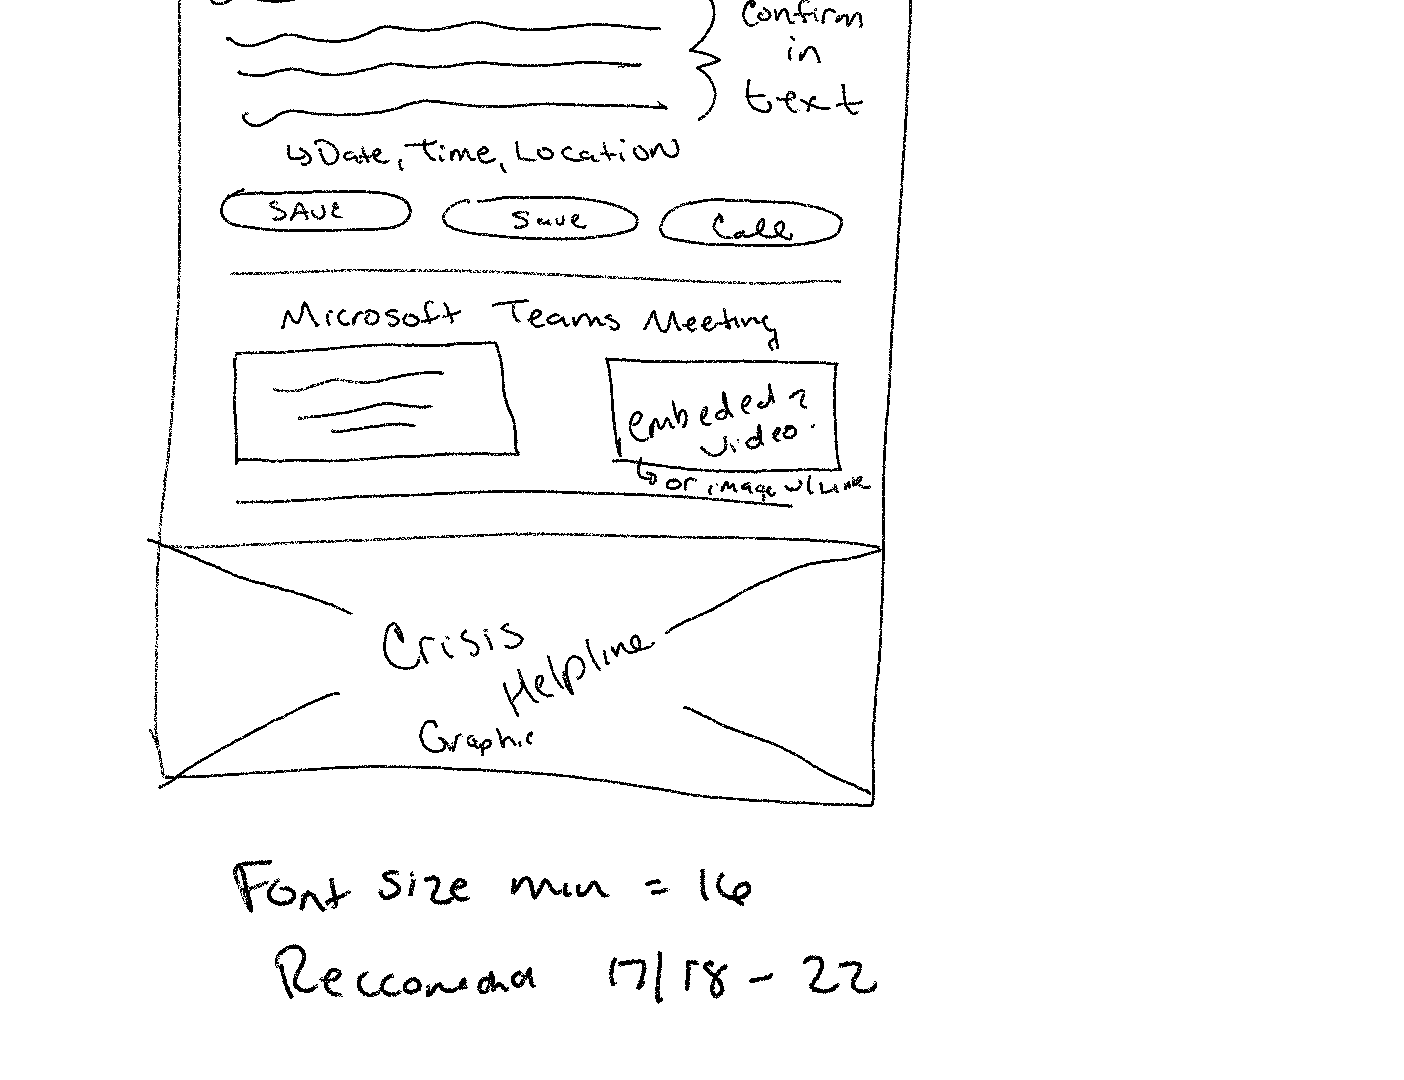 Confirm
in
text
↳Date, Time, Location
SAVE
Save
Call
Microsoft Teams Meeting
embeded ?
video.
↳ or image w/ Link
Crisis
Helpline
Graphic
Font size min = 16
Reccomend 17/18 - 22